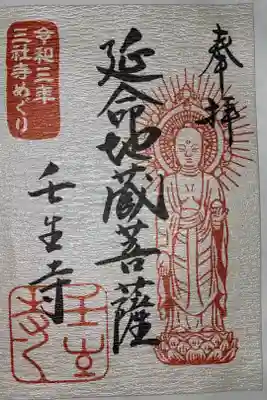 奉拝
延命地蔵菩薩
壬生寺
令和三年
三社寺めぐり